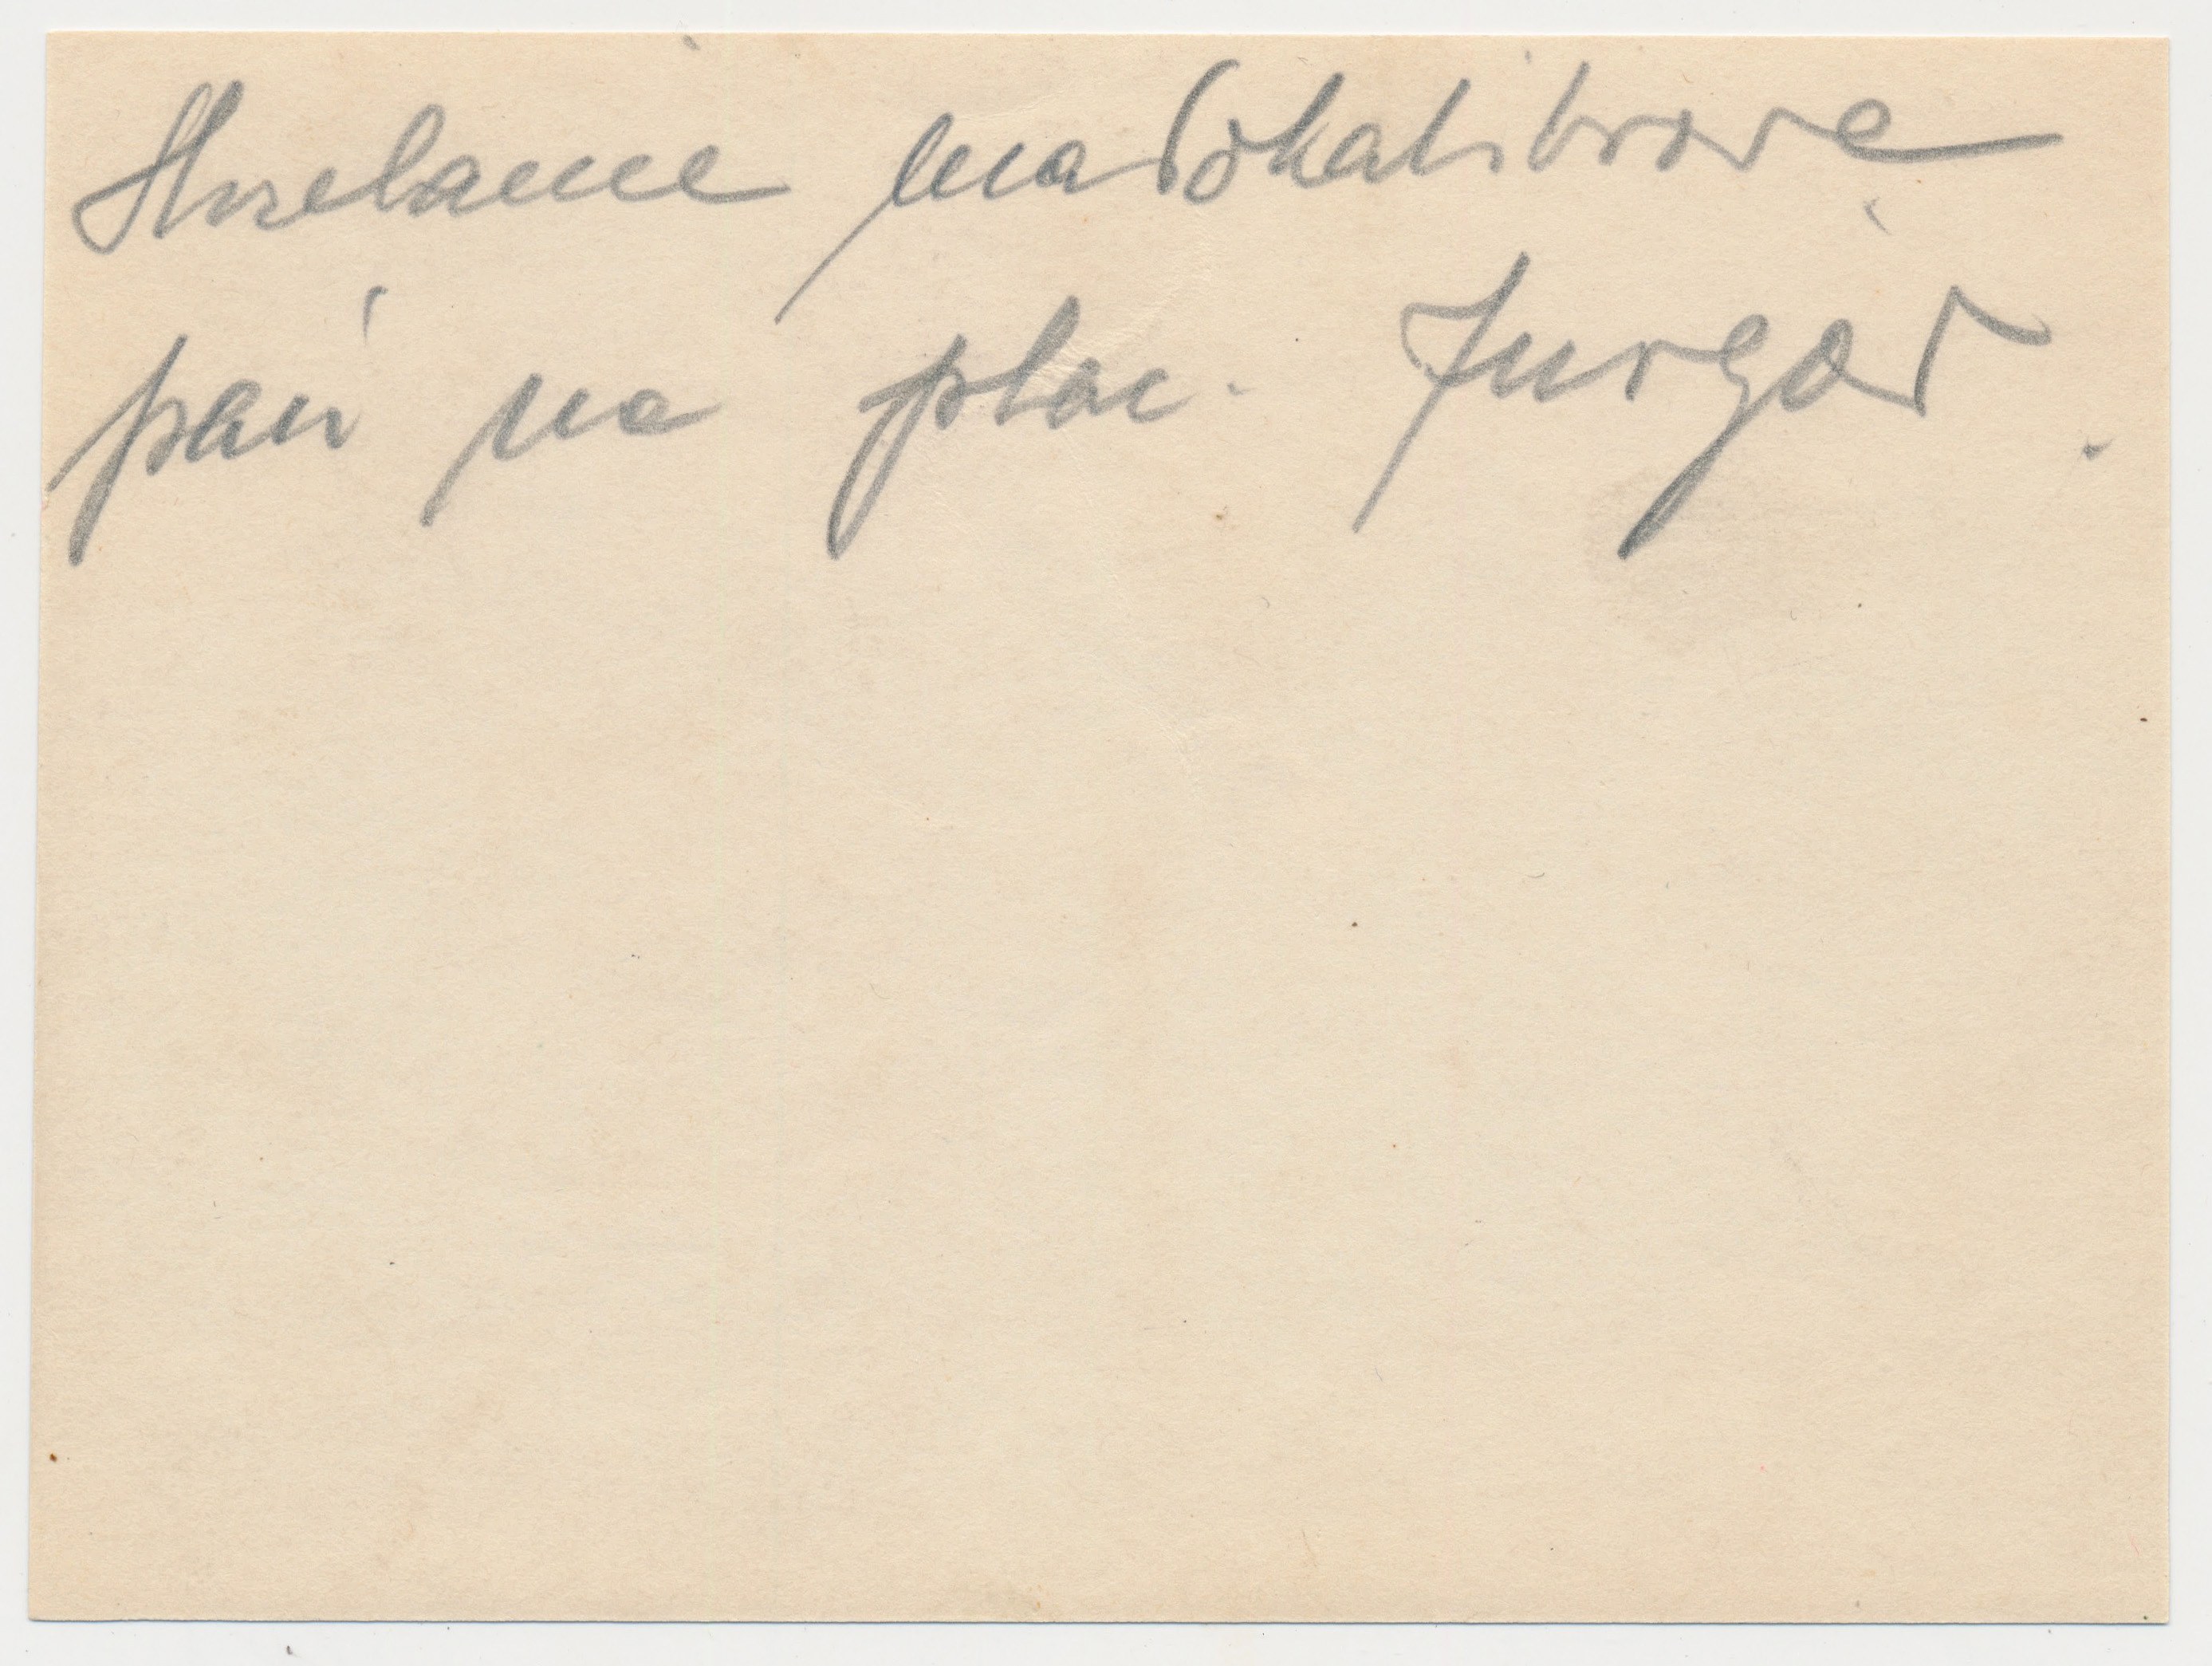 Strzelanie małokalibrowe
pań na plac. Jurgów.